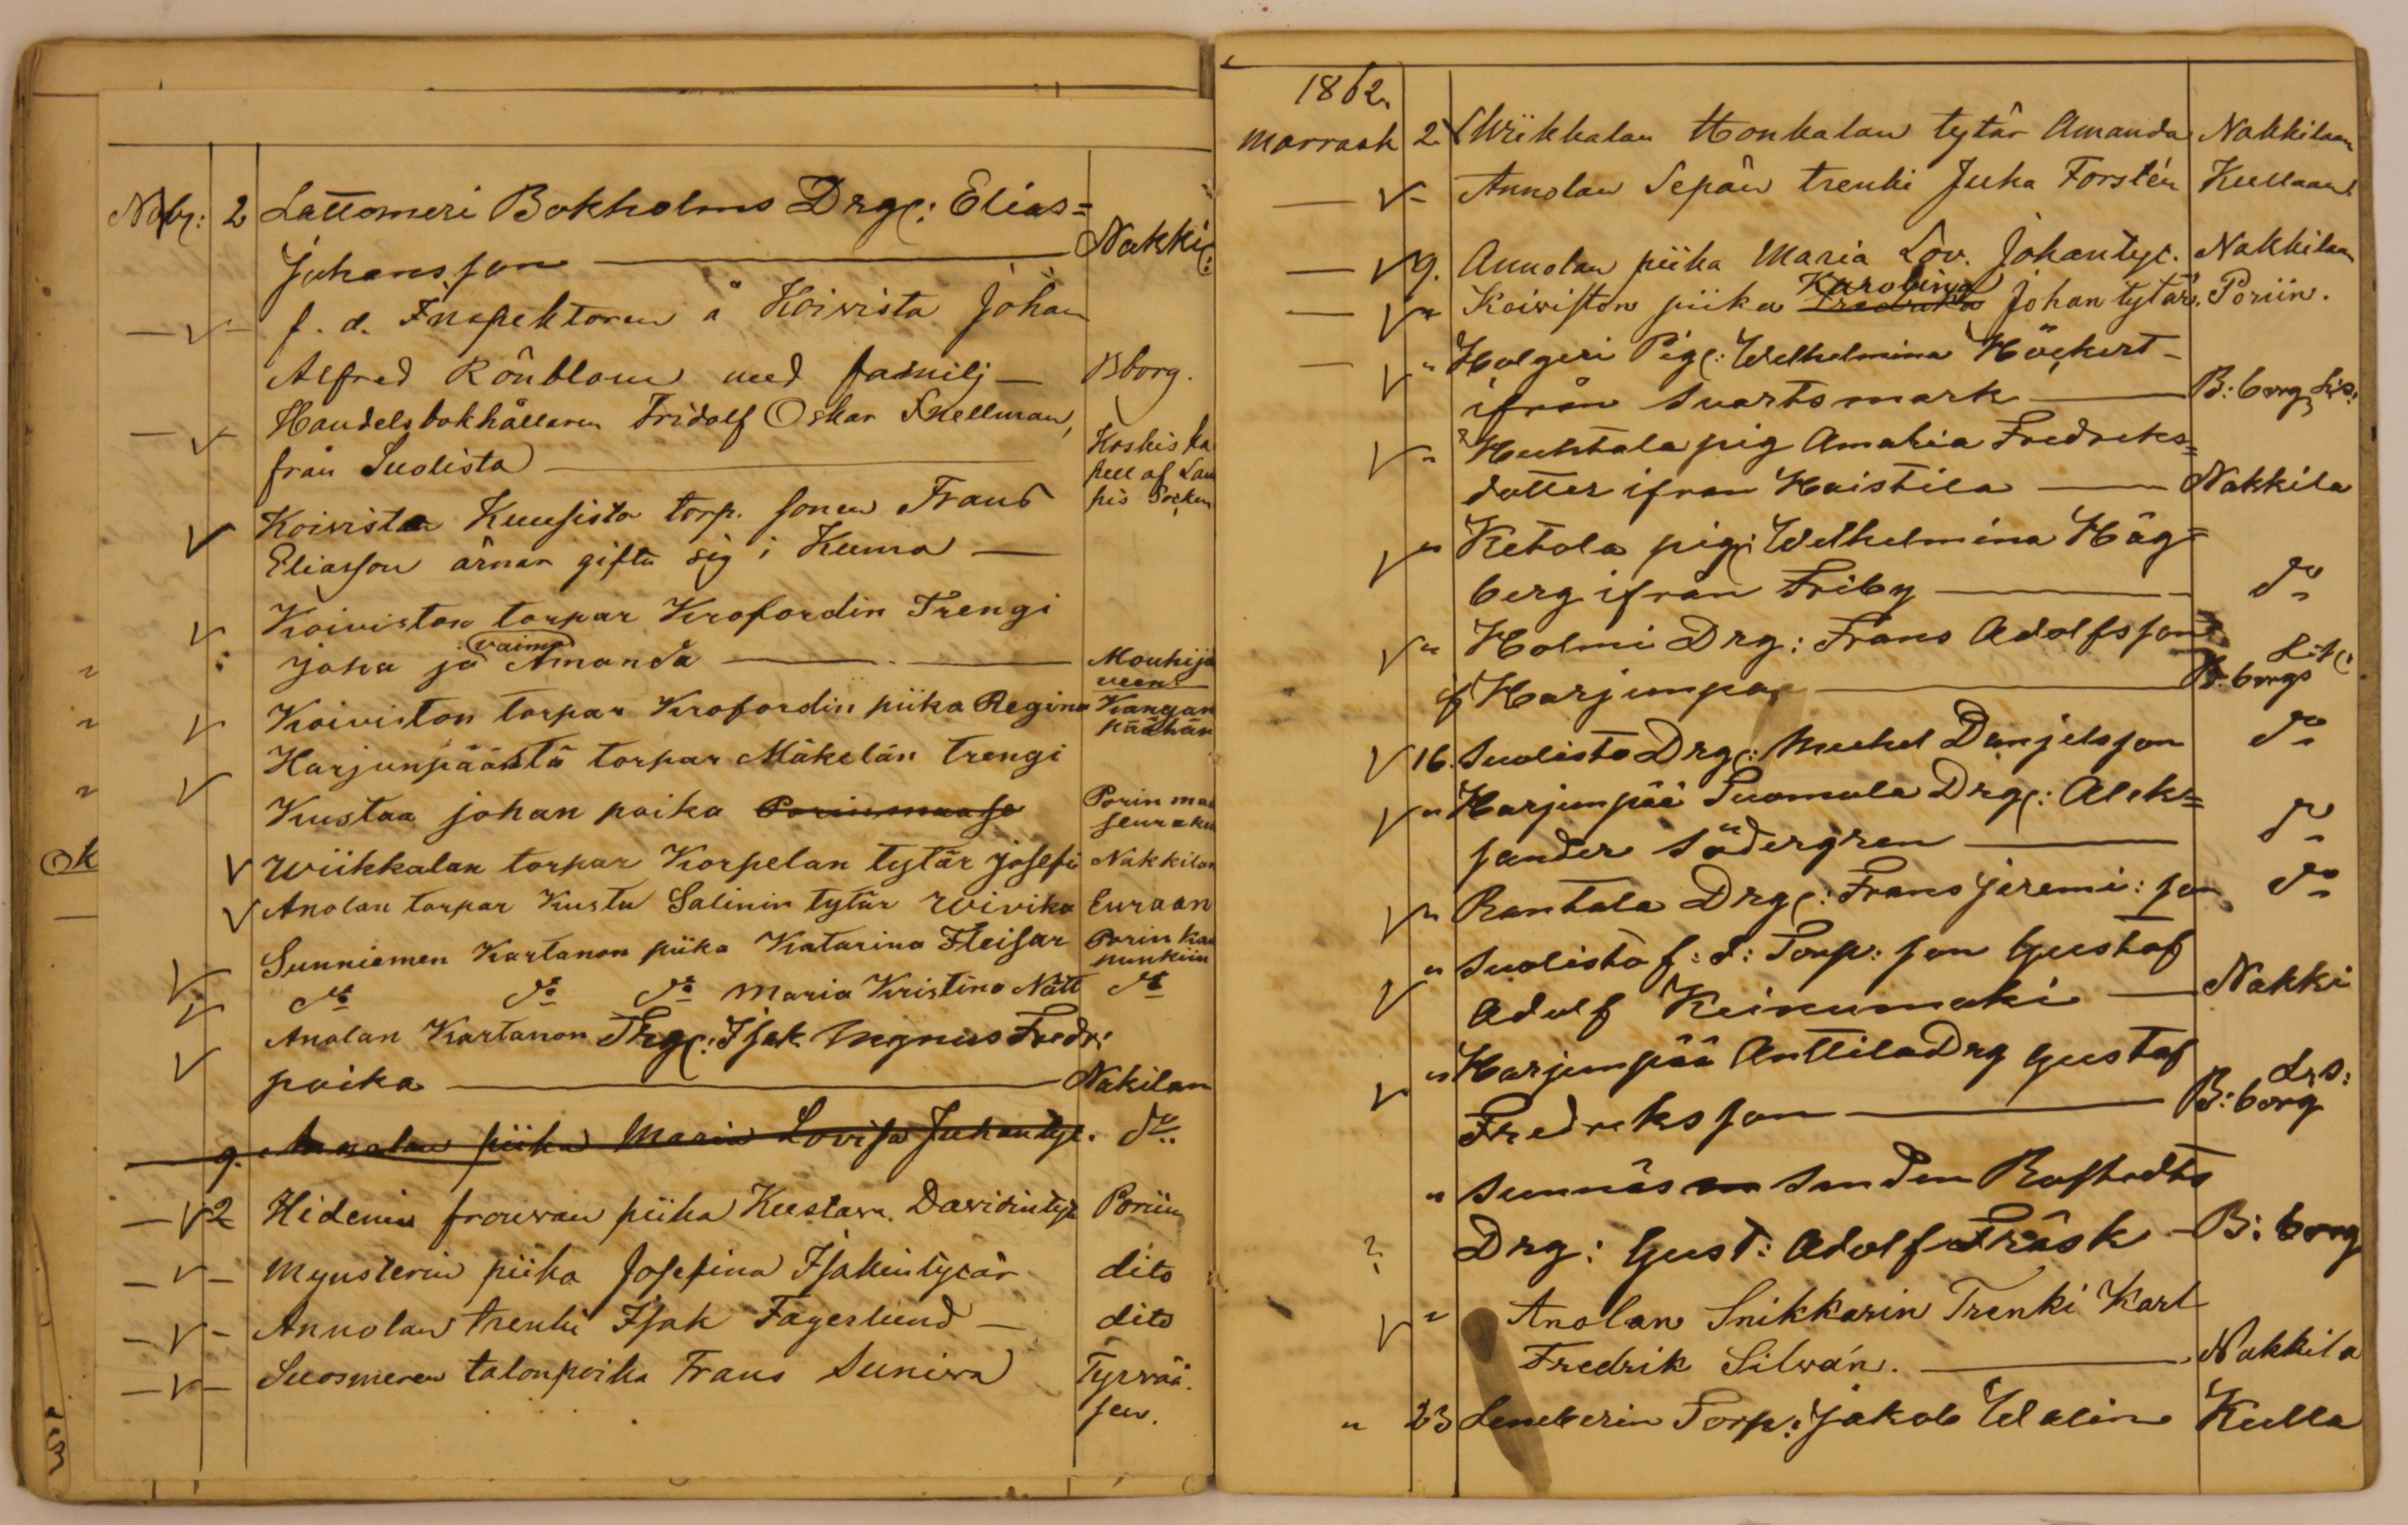 Nofbr: 2 Lattomeri Bokholms Drg: Elias=
Juhansson — Nakki:
f. d. Inspektoren å Koivista Johan
Alfred Rönblom med familj — Bborg.
Handelsbokhållaren Fridolf Oskar Snellman,
från Suolista — Koskis ka
pell af Lam
pis Socken
Koivista Kuusisto torp. sonen Frans
Eliasson ärnar gifta sig i Kumo —
Koiviston torpar Krofordin Trengi
vaimo
joha ja Amanda — Mouhijä
veen
Koiviston torpar Krofordin piika Regina Kangan
päähän
Harjunpäästä torpar Mäkelän trengi
Kustaa johan poika Porin maa
seuraku
Ok
Wiikkalan torpar Korpelan tytär josefi Nakkilan
Anolan torpar Kustu Salinin tytär Wivika Euraan
Sunniemen Kartanon piika Katarina Fleisar Porin kau
punkiin
do do do Maria Kristina Nätt do
Anolan Kartanon Drg: Isak Magnus Fredr:
poika — Nakilan
9. Annolan piika Maria Lovisa Juhantyt. do
— 2 Hidenin frouvan piika Kustava Davidintyt Poriin
— Mynsterin piika Josefina Isakintytär dito
— Annolan trenki Isak Fagerlund — dito
— Suosmeren talonpoika Frans Suniva Tyrvää.
seu.
1862.
Marrask 2 Wiikkalan Honkalan tytär Amanda Nakkilaan
— Annolan Sepän trenki Juha Forstén Kullaan
— 9. Annolan piika Maria Lov. Johantyt. Nakkilaan
Karolina
— " Koiviston piika Fredrika Johan tytär. Poriin.
— " Holgeri Pig: Welhelmina Höckert —
ifrån Svartsmark — B: borg Lrs:
" Huhtala pig Amalia Fredreks=
dotter ifrån Haistila — Nakkila
" Ketola pig: Welhelmina Häg=
berg ifrån Friby — do
" Holmi Drg: Frans Adolfsson
f Harjunpä — B. borgs
16. Suolisto Drg: Mickel Danjelsson do
" Harjunpää Tuomola Drg: Aleks=
sander Södergren — do
" Rantala Drg: Frans jeremi: son do
" Suolisto f: d: Torp: son Gustaf
Adolf Keinumaki — Nakki
" Harjunpää Anttila Drg Gustaf
Fredriksson — B: borg Lrs:
" Sunnäs Sanden Rostedts
? Drg: Gust: Adolf Träsk — B: borg
" Anolan Snikkarin Trenki Karl
Fredrik Silván. — Nakkila
" 23 Leneberin Torp: Jakob Walin Kulla